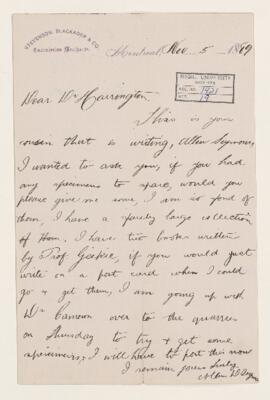 STEVENSON, BLACKADER & CO.
Montreal, Nov 5 1889
McGILL UNIVERSITY
ACC. NO. 1421
REF. 19
Dear Dr Harrington.
This is your
cousin that is writing, Allen Seymour,
I wanted to ask you, if you had
any specimens to spare, would you
please give me some, I am so fond of
them, I have a fairly large collection
of them. I have two books written
by Prof. Geikie, if you would just
write on a post card when I could
go & get them, I am going up with
Dr Cameron over to the quarries
on Thursday to try & get some
specimens; I will have to post this now
I remain yours truly
Allen